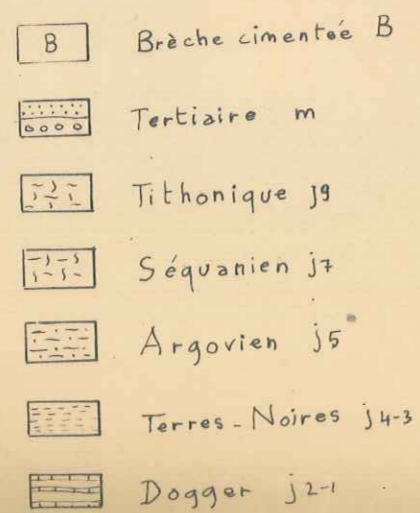 B Brèche cimentée B
Tertiaire m
Tithonique j9
Séquanien j7
Argovien j5
Terres-Noires j4-3
Dogger j2-1